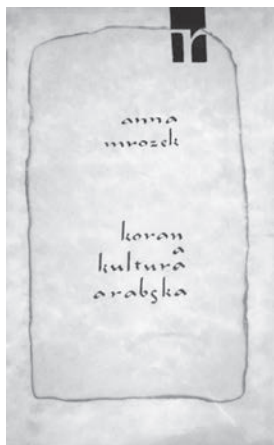 anna
mrozek
koran
a
kultura
arabska